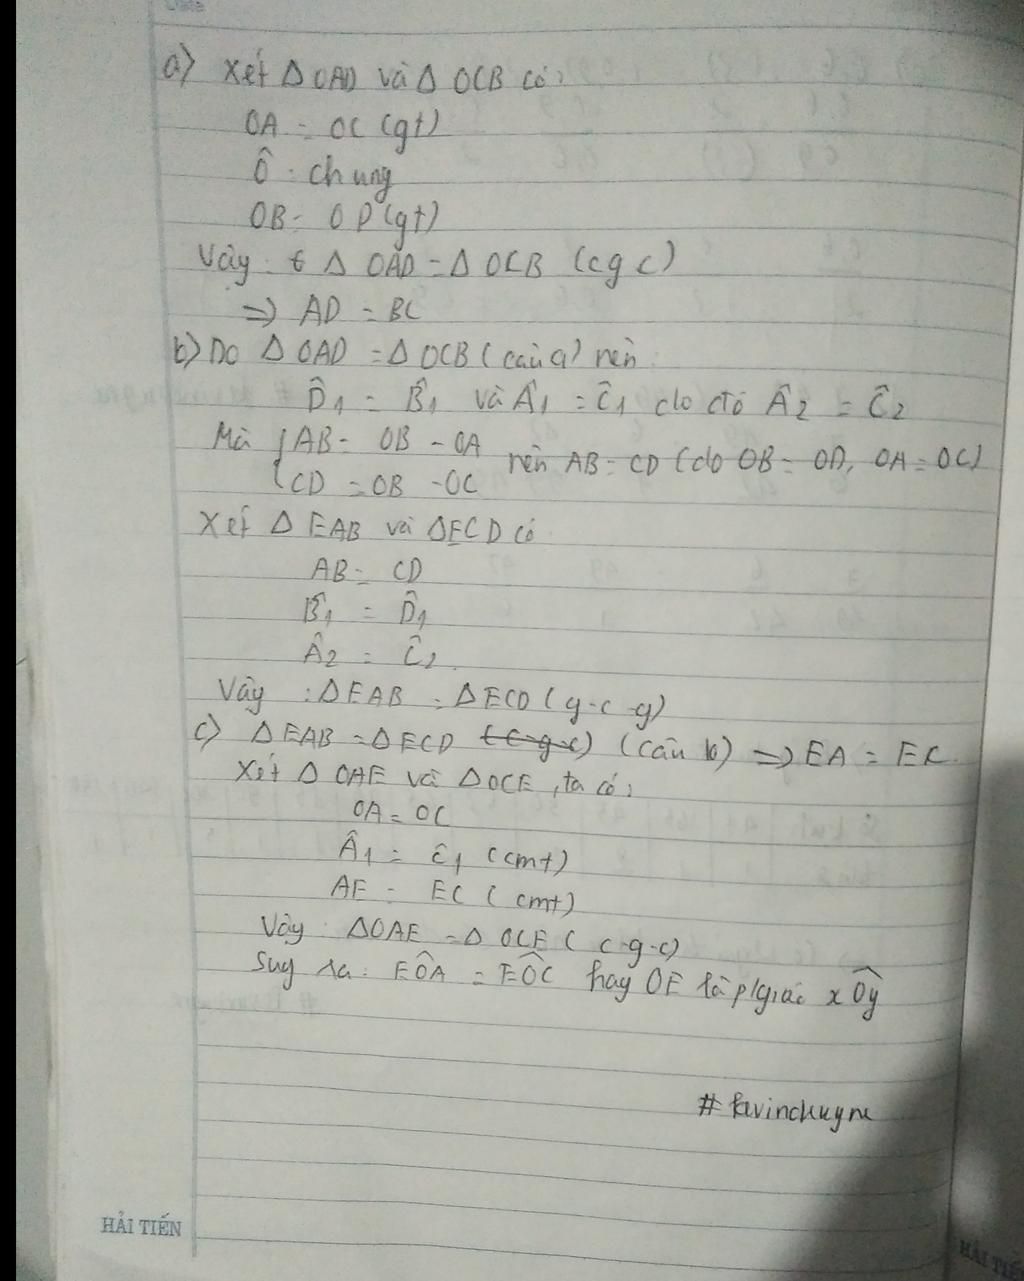 Date
a) Xét Δ OAD và Δ OCB có:
OA = OC (gt)
Ô : chung
OB = OD (gt)
Vậy : Δ OAD = Δ OCB (c g c)
=> AD = BC
b) Do Δ OAD = Δ OCB (câu a) nên :
D̂1 = B̂1 và Â1 = Ĉ1 do đó Â2 = Ĉ2
Mà { AB = OB - OA nên AB = CD (do OB = OD, OA = OC)
CD = OB - OC
Xét Δ EAB và Δ ECD có
AB = CD
B̂1 = D̂1
Â2 = Ĉ2.
Vậy : Δ EAB = Δ ECD (g-c-g)
c) Δ EAB = Δ ECD (c-g-c) (câu b) => EA = EC.
Xét Δ OAE và Δ OCE, ta có:
OA = OC
Â1 = Ĉ1 (cmt)
AE = EC (cmt)
Vậy : Δ OAE = Δ OCE (c-g-c)
Suy ra : EÔA = EÔC hay OE là p/giác xÔy
HẢI TIẾN
HẢI TIẾ